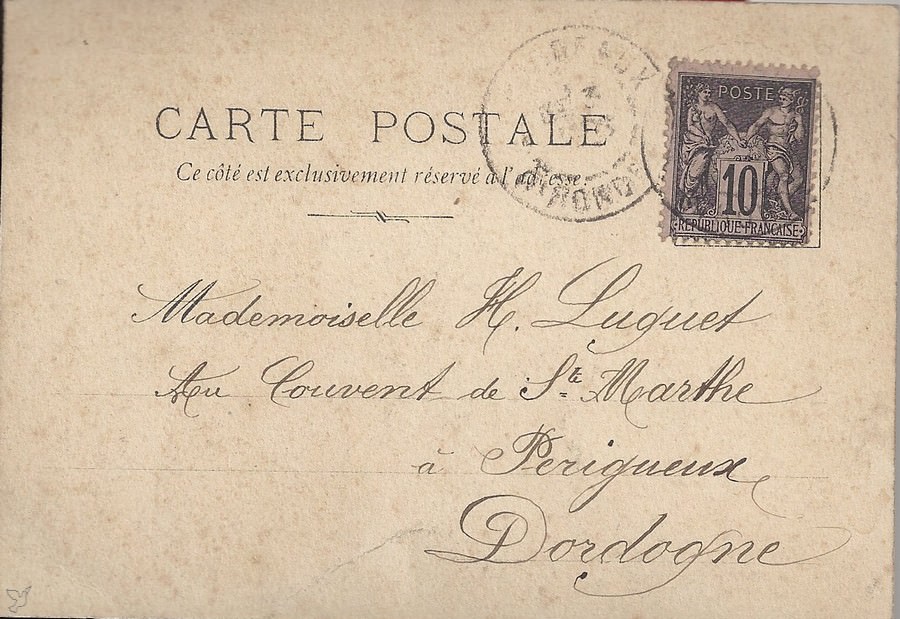 BORDEAUX
GIRONDE
POSTE
10
REPUBLIQUE FRANÇAISE
CARTE POSTALE
Ce côté est exclusivement réservé à l'adresse.
Mademoiselle H. Luguet
Au Couvent de Ste Marthe
à Perigueux
Dordogne